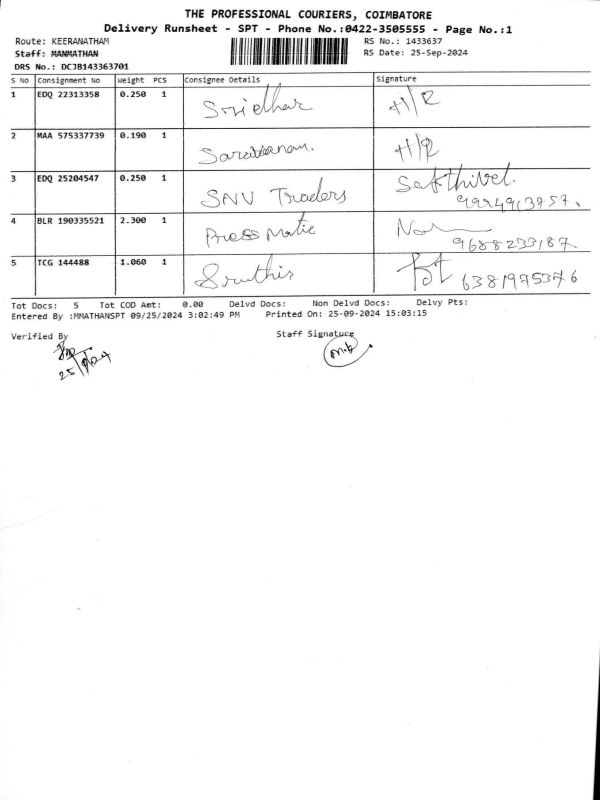 THE PROFESSIONAL COURIERS, COIMBATORE
Delivery Runsheet - SPT - Phone No.:0422-3505555 - Page No.:1
Route: KEERANATHAM RS No.: 1433637
Staff: MANMATHAN RS Date: 25-Sep-2024
DRS No.: DCJB143363701
S No Consignment No Weight PCS Consignee Details Signature
1 EDQ 22313358 0.250 1 Sridhar H/R
2 MAA 575337739 0.190 1 H/R
3 EDQ 25204547 0.250 1 SNV Traders Sakthivel.
9994913757.
4 BLR 190335521 2.300 1 Press Matic
9688233187
5 TCG 144488 1.060 1 Sruthis 6381975376
Tot Docs: 5 Tot COD Amt: 0.00 Delvd Docs: Non Delvd Docs: Delvy Pts:
Entered By :MMATHANSPT 09/25/2024 3:02:49 PM Printed On: 25-09-2024 15:03:15
Verified By Staff Signature